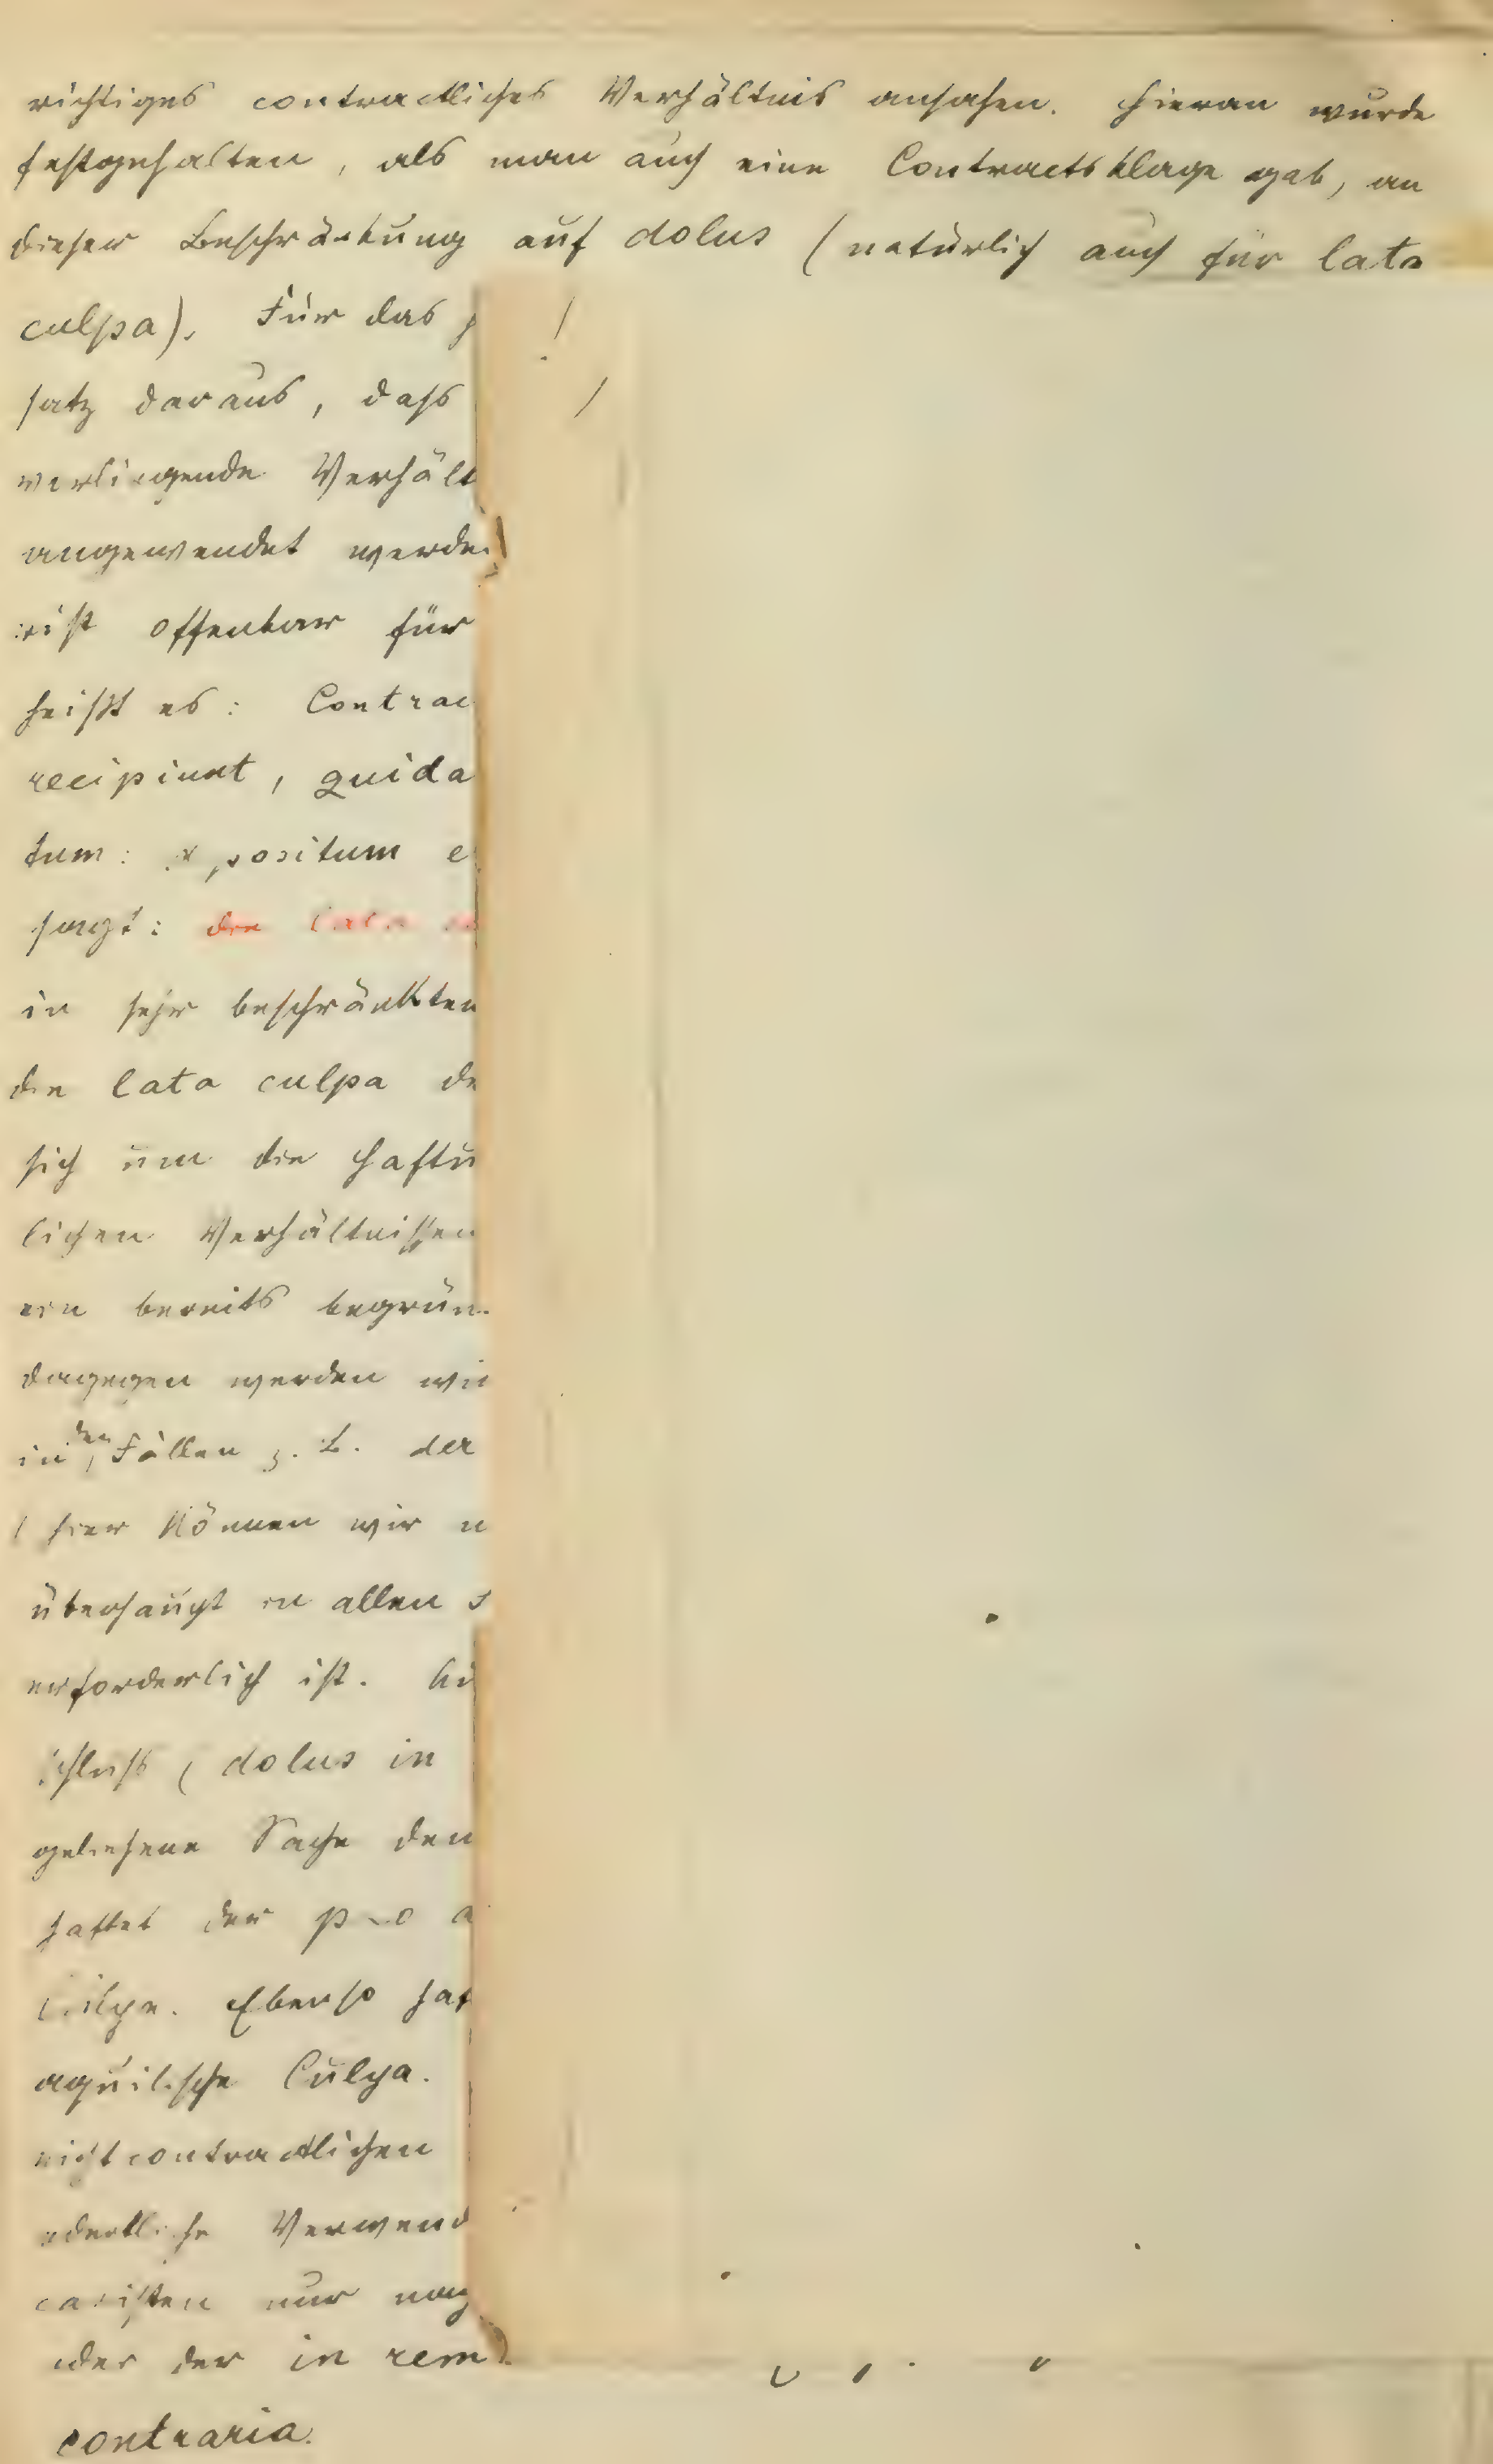 richtiges contractliches Verhältnis ansahen. Hieran wurde
festgehalten, als man auch eine Contractsklage gab, an
dieser Beschränkung auf dolus (natürlich auch für lata
culpa). Für das
satz daraus, dass
vorliegende Verhält
angewendet werde
ist offenbar für
heißt es: Contrac
recipiunt, quida
tum: positum e
sagt: die lata
in sehr beschränkten
die lata culpa de
sich um die Haftu
lichen Verhältnissen
ein bereits begrün
dagegen werden wir
in den Fällen z. B. der
hier können wir n
überhaupt in allen
erforderlich ist. Hi
schluß (dolus in
geliehene Sache den
haftet der pro a
Culpa. Ebenso haf
aquilische Culpa.
nichtcontractlichen
Verwend
caristen nur nach
oder der in rem
contraria.